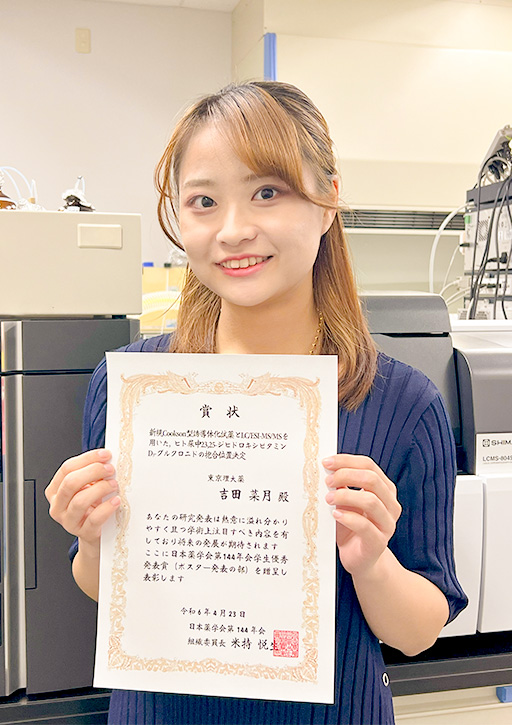 賞状
新規Cookson型誘導体化試薬とLC/ESI-MS/MSを
用いた、ヒト尿中23,25-ジヒドロキシビタミン
D₃グルクロニドの抱合位置決定
東京理大薬
吉田 菜月 殿
あなたの研究発表は熱意に溢れ分かり
やすく且つ学術上注目すべき内容を有
しており将来の発展が期待されます
ここに日本薬学会第144年会学生優秀
発表賞（ポスター発表の部）を贈呈し
表彰します
令和6年4月23日
日本薬学会第144年会
組織委員長 米持 悦生
SHIMA
LCMS-8045